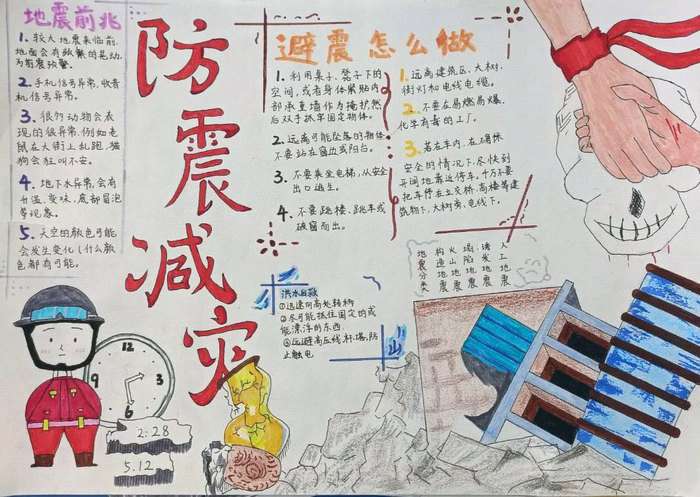 地震前兆
1. 较大地震来临前,
地面会有频繁的晃动,
为前震预警。
2. 手机信号异常,收音
机信号异常。
3. 很多动物会表
现的很异常,例如老
鼠在大街上乱跑,猫
狗会狂叫不安。
4. 地下水异常,会有
升温、变味、底部冒泡
等现象。
5. 天空的颜色可能
会发生变化(什么颜
色都有可能。
防震减灾
避震怎么做
1. 利用桌子、凳子下的
空间,或者身体紧贴内
部承重墙作为掩护然
后双手抓牢固定物体。
2. 远离可能坠落的物体
不要站在窗边或阳台。
3. 不要乘坐电梯,从安全
出口逃生。
4. 不要跳楼、跳车或
破窗而出。
1. 远离建筑区、大树、
街灯和电线电缆。
2. 不要在易燃易爆、
化学有毒的工厂。
3. 若在车内,在确保
安全的情况下,尽快到
开阔地靠边停车。千万不要
把车停在立交桥,高楼等建
筑物下,大树旁,电线下。
地震分类
构造地震
火山地震
塌陷地震
诱发地震
人工地震
洪水自救
①迅速向高处转移
②尽可能抓住固定的或
能漂浮的东西
③远避高压线杆、塔,防
止触电
12
3
6
9
2:28
5.12